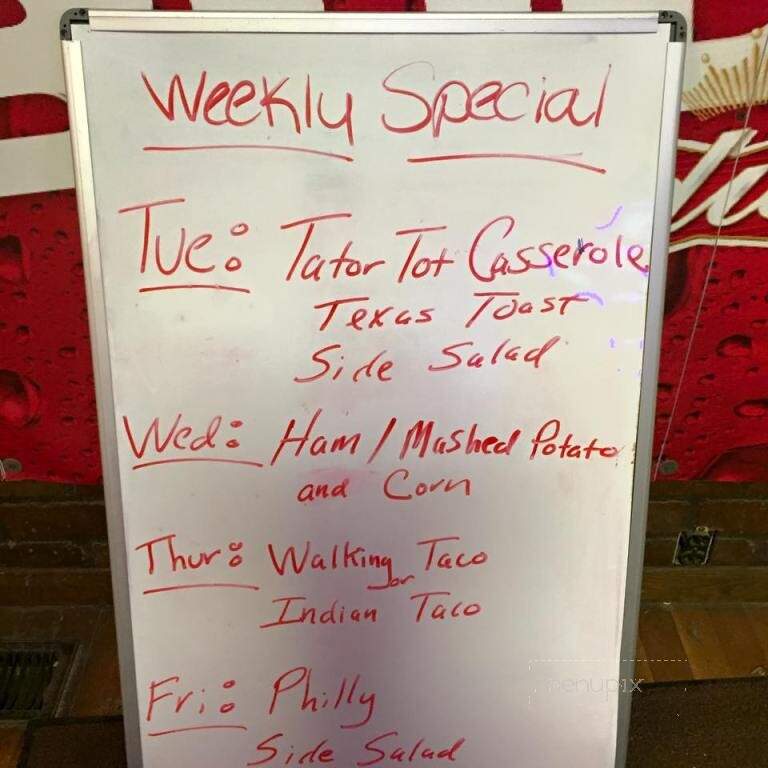 Weekly Special
Tue: Tator Tot Casserole
Texas Toast
Side Salad
Wed: Ham / Mashed Potato
and Corn
Thur: Walking Taco
or
Indian Taco
Fri: Philly
Side Salad